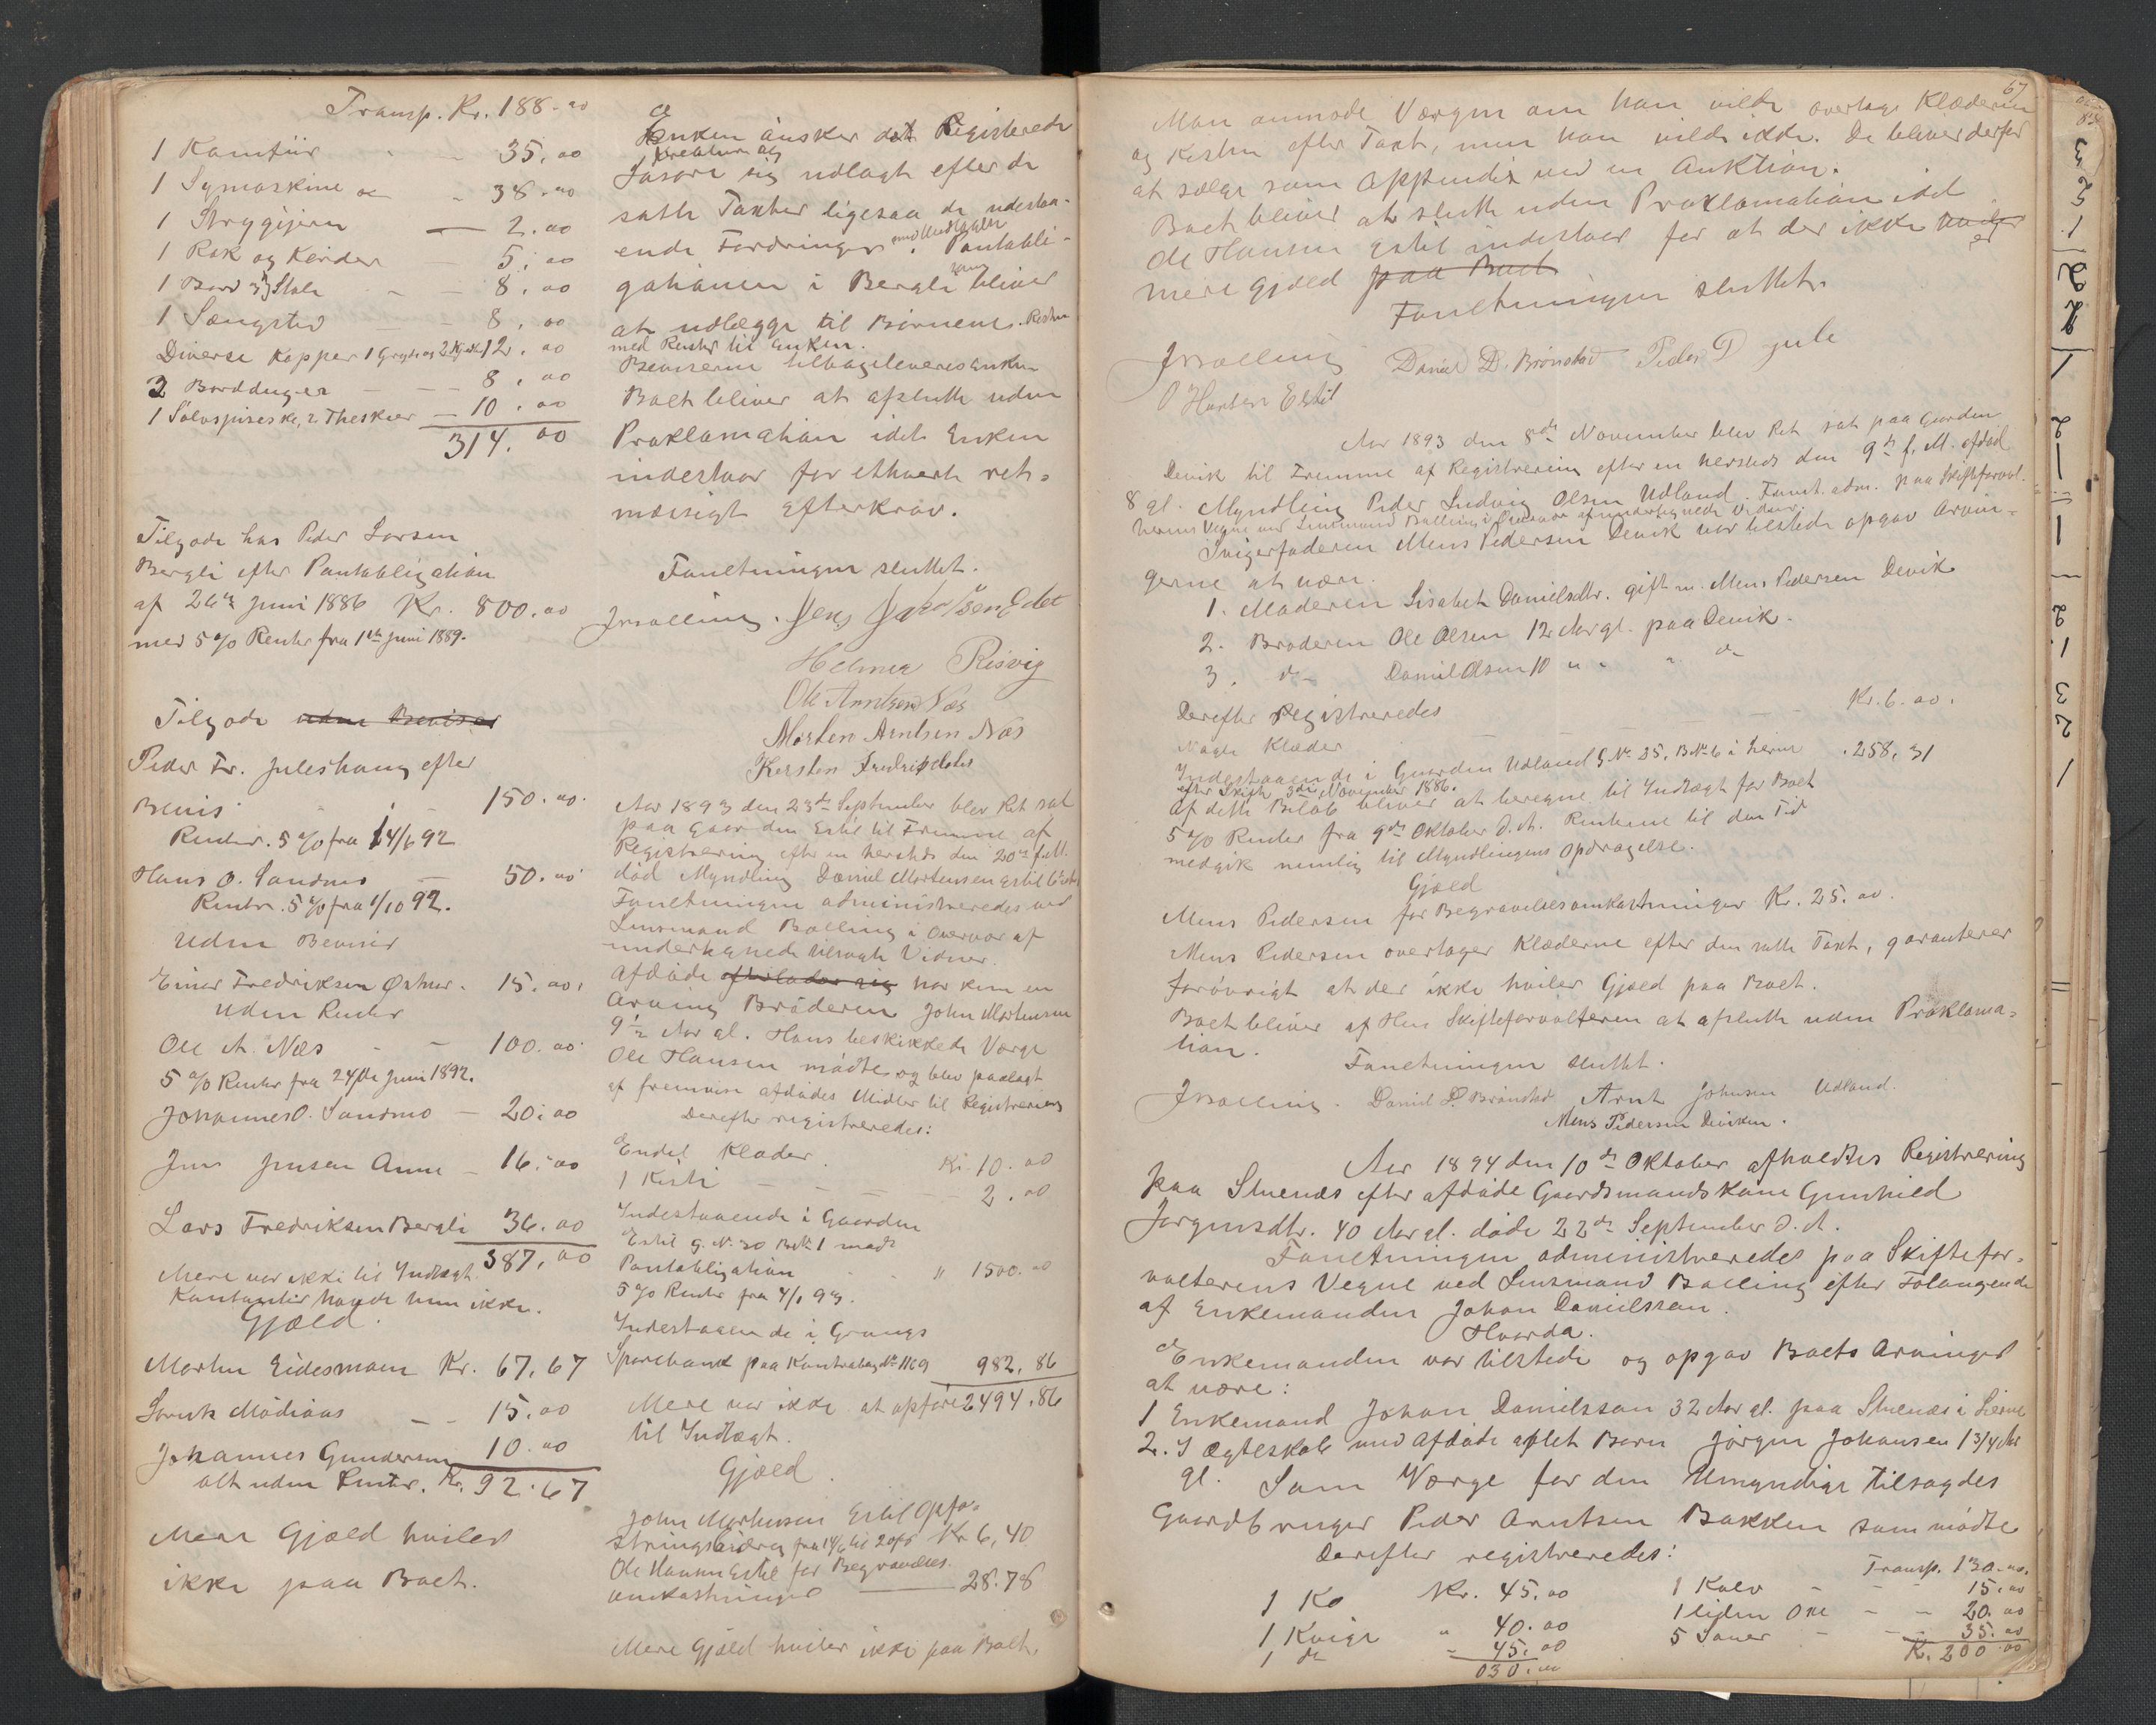 Transp. Kr. 188.00
1 Kamfiir - - 35.00
1 Symaskine - 38.00
1 Strygejern — 2.00
1 Rok og Karder — 5.00
1 Bord 3 Stole - - 8.00
1 Sængsted - - 8.00
Diverse Kopper 1 Gryde og 2 12.00
2 Bordduger - - - 8.00
1 Sølvspiseske, 2 Theskeer — 10.00
314.00
Tilgode hos Peder Larsen
Bergli efter Pantobligation
af 26de Juni 1886 Kr. 800.00
med 5% Renter fra 1ste Juni 1889.
Tilgode uden Beviser
Peder Fr. Juleshaug efter
Bevis - - 150.00
Renter. 5% fra 14/6 92
Hans O. Sandmo — 50.00
Renter. 5% fra 1/10 92.
Uden Beviser
Einar Fredriksen 15.00
uden Renter
Ole A. Næs - - 100.00
5% Renter fra 24de Juni 1892.
Johannes O. Sandmo — 20.00
Jens Jensen Aune — 16.00
Lars Fredriksen Bergli 36.00
387.00
Mere var ikke til Indtægt.
Kontanter havde hun ikke.
Gjæld.
Morten Eidesmoen Kr. 67.67
Mödiaas - - 15.00
Johannes Gundersen 10.00
alt uden Renter. Kr. 92.67
Mere Gjæld hviler
ikke paa Boet.
Enken önsker det Registrerede
Kreatur og
Løsøre sig udlagt efter de
satte Taxter ligesaa de udestaa-
ende Fordringer. Pantobli-
med Undtagelse
gationen i Bergli som bliver
at udlægge til Børnene. Resten
med Renter til Enken.
Beviserne tilbageleveres Enken
Boet bliver at afslutte uden
Proklamation idet Enken
indestaar for ethvert ret-
mæssigt Efterkrav.
Forretningen sluttet.
JBolling. Jens Jakobsen
Helmer Risvig
Ole Arntsen Næs
Morten Arntsen Næs
Kersten Fredrikdatter
Aar 1893 den 23de September blev Ret sat
paa Gaarden Estil til Fremme af
Registrering efter en hersteds den 20de f.M.
død Myndling Daniel Mortensen Estil
Forretningen administreredes ved
Lensmand Bolling i Overvær af
undertegnede tilsagte Vidner.
Afdøde efterlader sig har kun en
Arving Bröderen John Mortensen
9½ Aar gl. Hans beskikkede Værge
Ole Hansen mödte og blev paalagt
at fremvise afdødes Midler til Registrering
Derefter registreredes:
Endel Klæder Kr. 10.00
1 Kiste - - - - 2.00
Indestaaende i Gaarden
Estil G. No 30 BNo 1 mod
Pantobligation - - " 1500.00
5% Renter fra 4/1 93.
Indestaaende i Grongs
Sparebank paa Kontrabog No 1169 982.86
Mere var ikke at opføre 2494.86
til Indtægt.
Gjæld.
John Mortensen Estil Opfo-
stringsbidrag fra 14/6 til 20/8 Kr 6,40
Ole Hansen Estil for Begravelses-
omkostninger — 28.78
Mere Gjæld hviler ikke paa Boet.
67
Man anmode Værgen om han vilde overtage Klæderne
og Kisten efter Taxt, men han vilde ikke. De bliver derfor
at sælge som Appendix ved en Auktion.
Boet bliver at slutte uden Proklamation idet
Ole Hansen Estil indestaar for at der ikke hviler
er
mere Gjæld paa Boet.
Forretningen sluttet.
JBolling Daniel D. Brönstad Peder P Jule
O Hansen Estil
Aar 1893 den 8de November blev Ret sat paa Gaarden
Devik til Fremme af Registrering efter en hersteds den 9de f. M. afdød
8 gl. Myndling Peder Ludvig Olsen Udland. Forret. adm. paa Skifteforval-
terens Vegne ved Lensmand Bolling i Overvær af undertegnede Vidner.
Svigerfaderen Mens Pedersen Devik var tilstede opgav Arvin-
gerne at være.
1. Moderen Lisabet Danielsdtr. gift m. Mens Pedersen Devik
2. Broderen Ole Olsen 12 Aar gl. paa Devik.
3. do Daniel Olsen 10 " " " do
Derefter Registreredes
Nogle Klæder - - - Kr. 6.00.
Indestaaende i Gaarden Udland G.No 35, B.No 6 i Lierne . 258,31
efter Skifte 3die November 1886.
Af dette Beløb bliver at beregne til Indtægt for Boet
5% Renter fra 9de Oktober d.A. Renterne til den Tid
medgik nemlig til Myndlingens Opdragelse.
Gjæld
Mens Pedersen for Begravelsesomkostninger Kr. 25.00.
Mens Pedersen overtager Klæderne efter den satte Taxt, garanterer
forövrigt at der ikke hviler Gjæld paa Boet.
Boet bliver af Hrr Skifteforvalteren at afslutte uden Proklama-
tion.
Forretningen sluttet.
JBolling. Daniel D. Brönstad Arnt Johnsen Udland.
Mens Pedersen Deviken.
Aar 1894 den 10de Oktober afholdtes Registrering
paa Stuenæs efter afdøde Gaardmandskone Gunhild
Jørgensdtr. 40 Aar gl. døde 22de September d. A.
Forretningen administreredes paa Skiftefor-
valterens Vegne ved Lensmand Bolling efter Forlangende
af Enkemanden Johan Danielssen.
Hvorda.
Enkemanden var tilstede og opgav Boets Arvinger
at være:
1 Enkemand Johan Danielssen 32 Aar gl. paa Stuenæs i Lierne
2. I Ægteskab med Afdøde aflet Barn Jørgen Johansen 1 3/4 Aar
gl. Som Værge for den Umyndige tilsagdes
Gaardbruger Peder Arntsen Bakken som mödte
Derefter registreredes:
1 Ko Kr. 45.00
1 Kvige " 40.00
1 do " 45.00
030.00
Transp. 130.00.
1 Kalv - - - 15.00
1 liden Oxe - - 20.00
5 Sauer - - - 35.00
K. 200 00